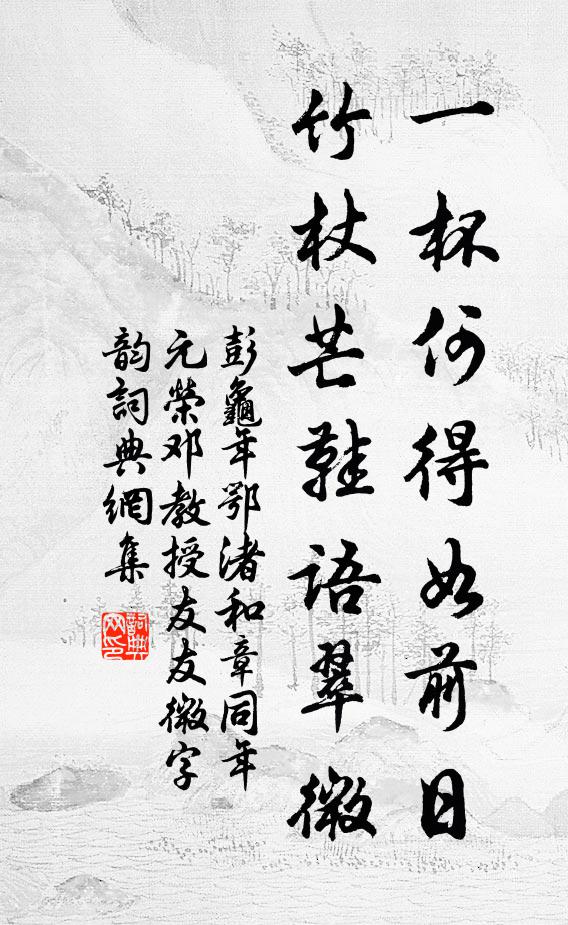 一杯何得如前日
竹杖芒鞋語翠微
彭龜年鄂渚和章同年
元榮邓教授友友微字
韵詞典網集
詞典
网印